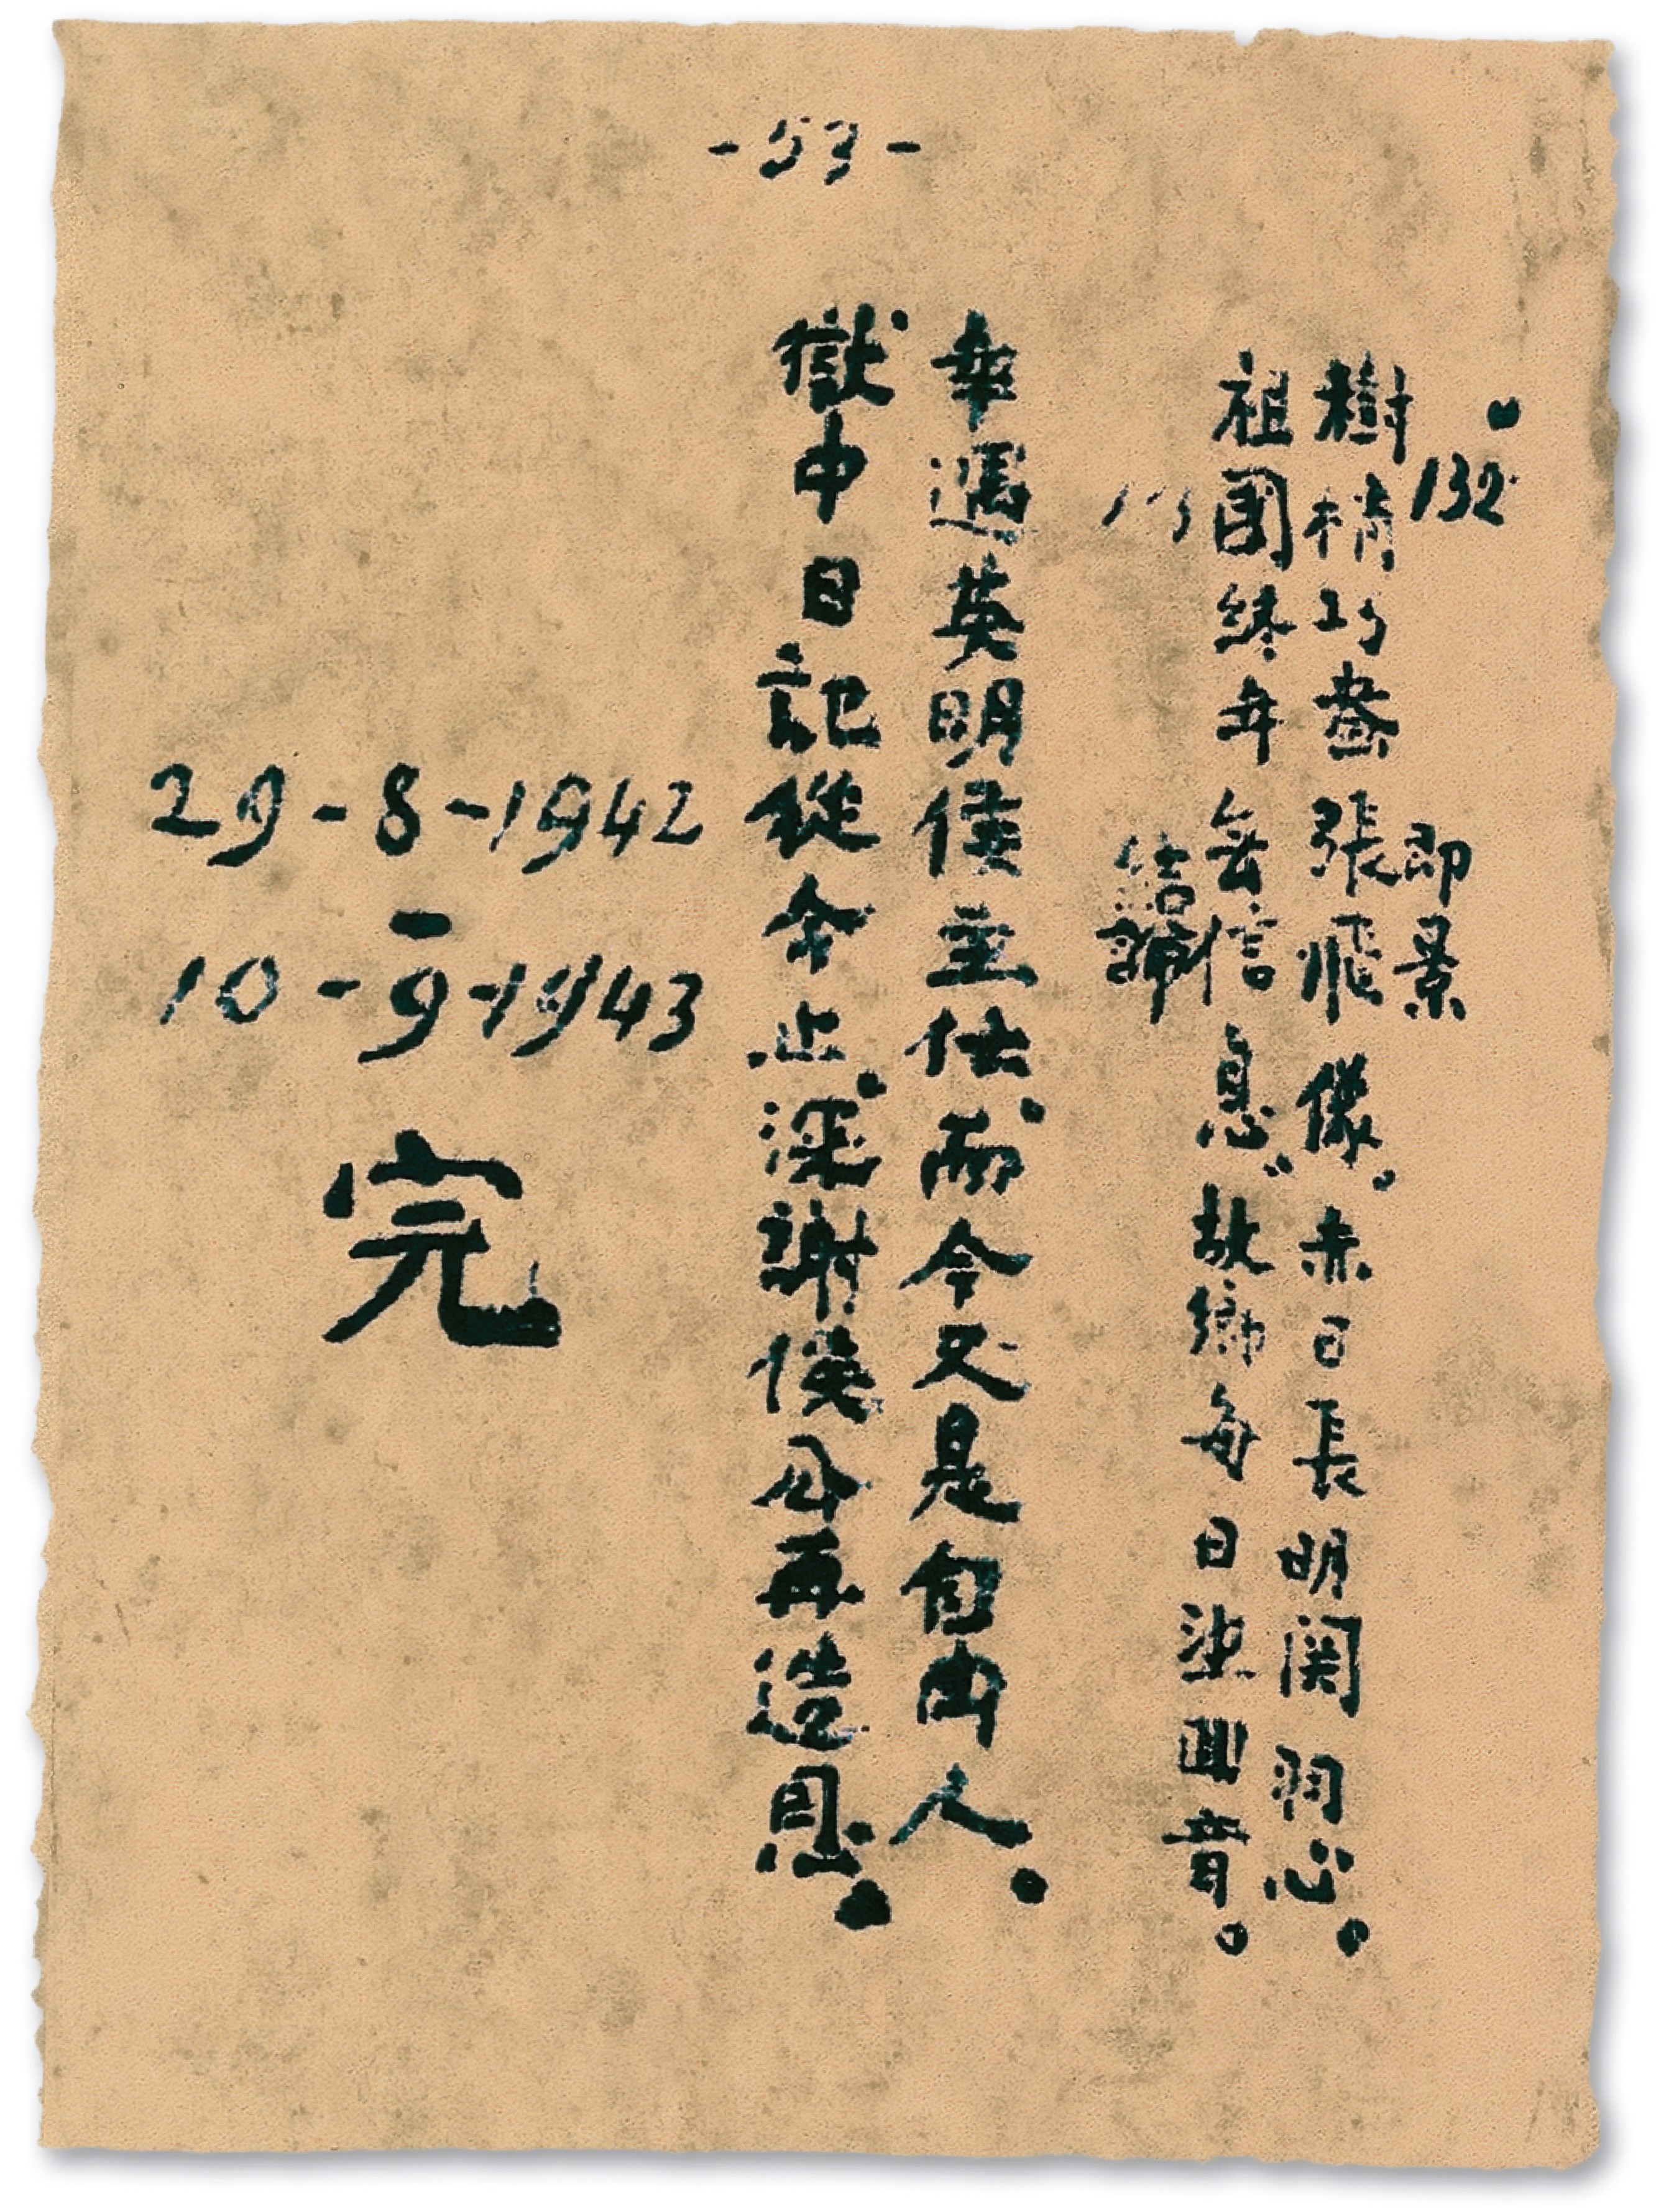 -53-
132 即景
樹梢巧畫張飛像。赤日長明関羽心。
祖國終年無信息、故鄉每日望囬音。
結論
幸遇英明侯主任、而今又是自由人。
獄中日記從今止、深謝侯公再造恩。
29-8-1942
-
10-9-1943
完